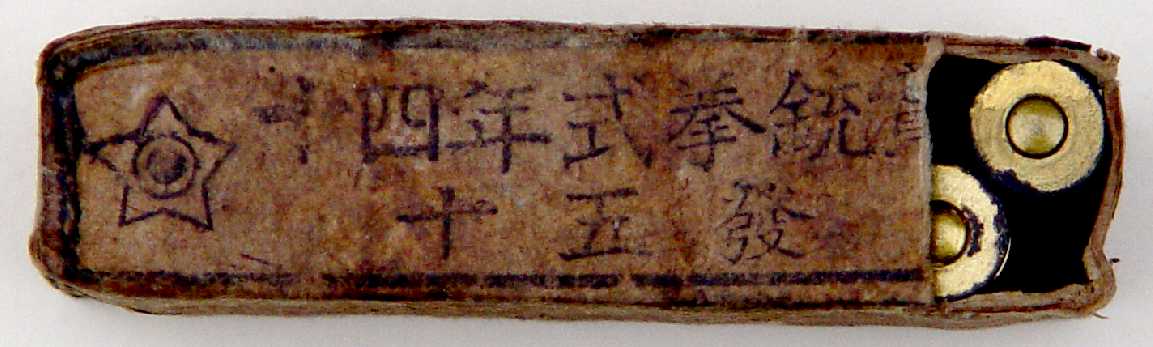 十四年式拳銃實
十五發